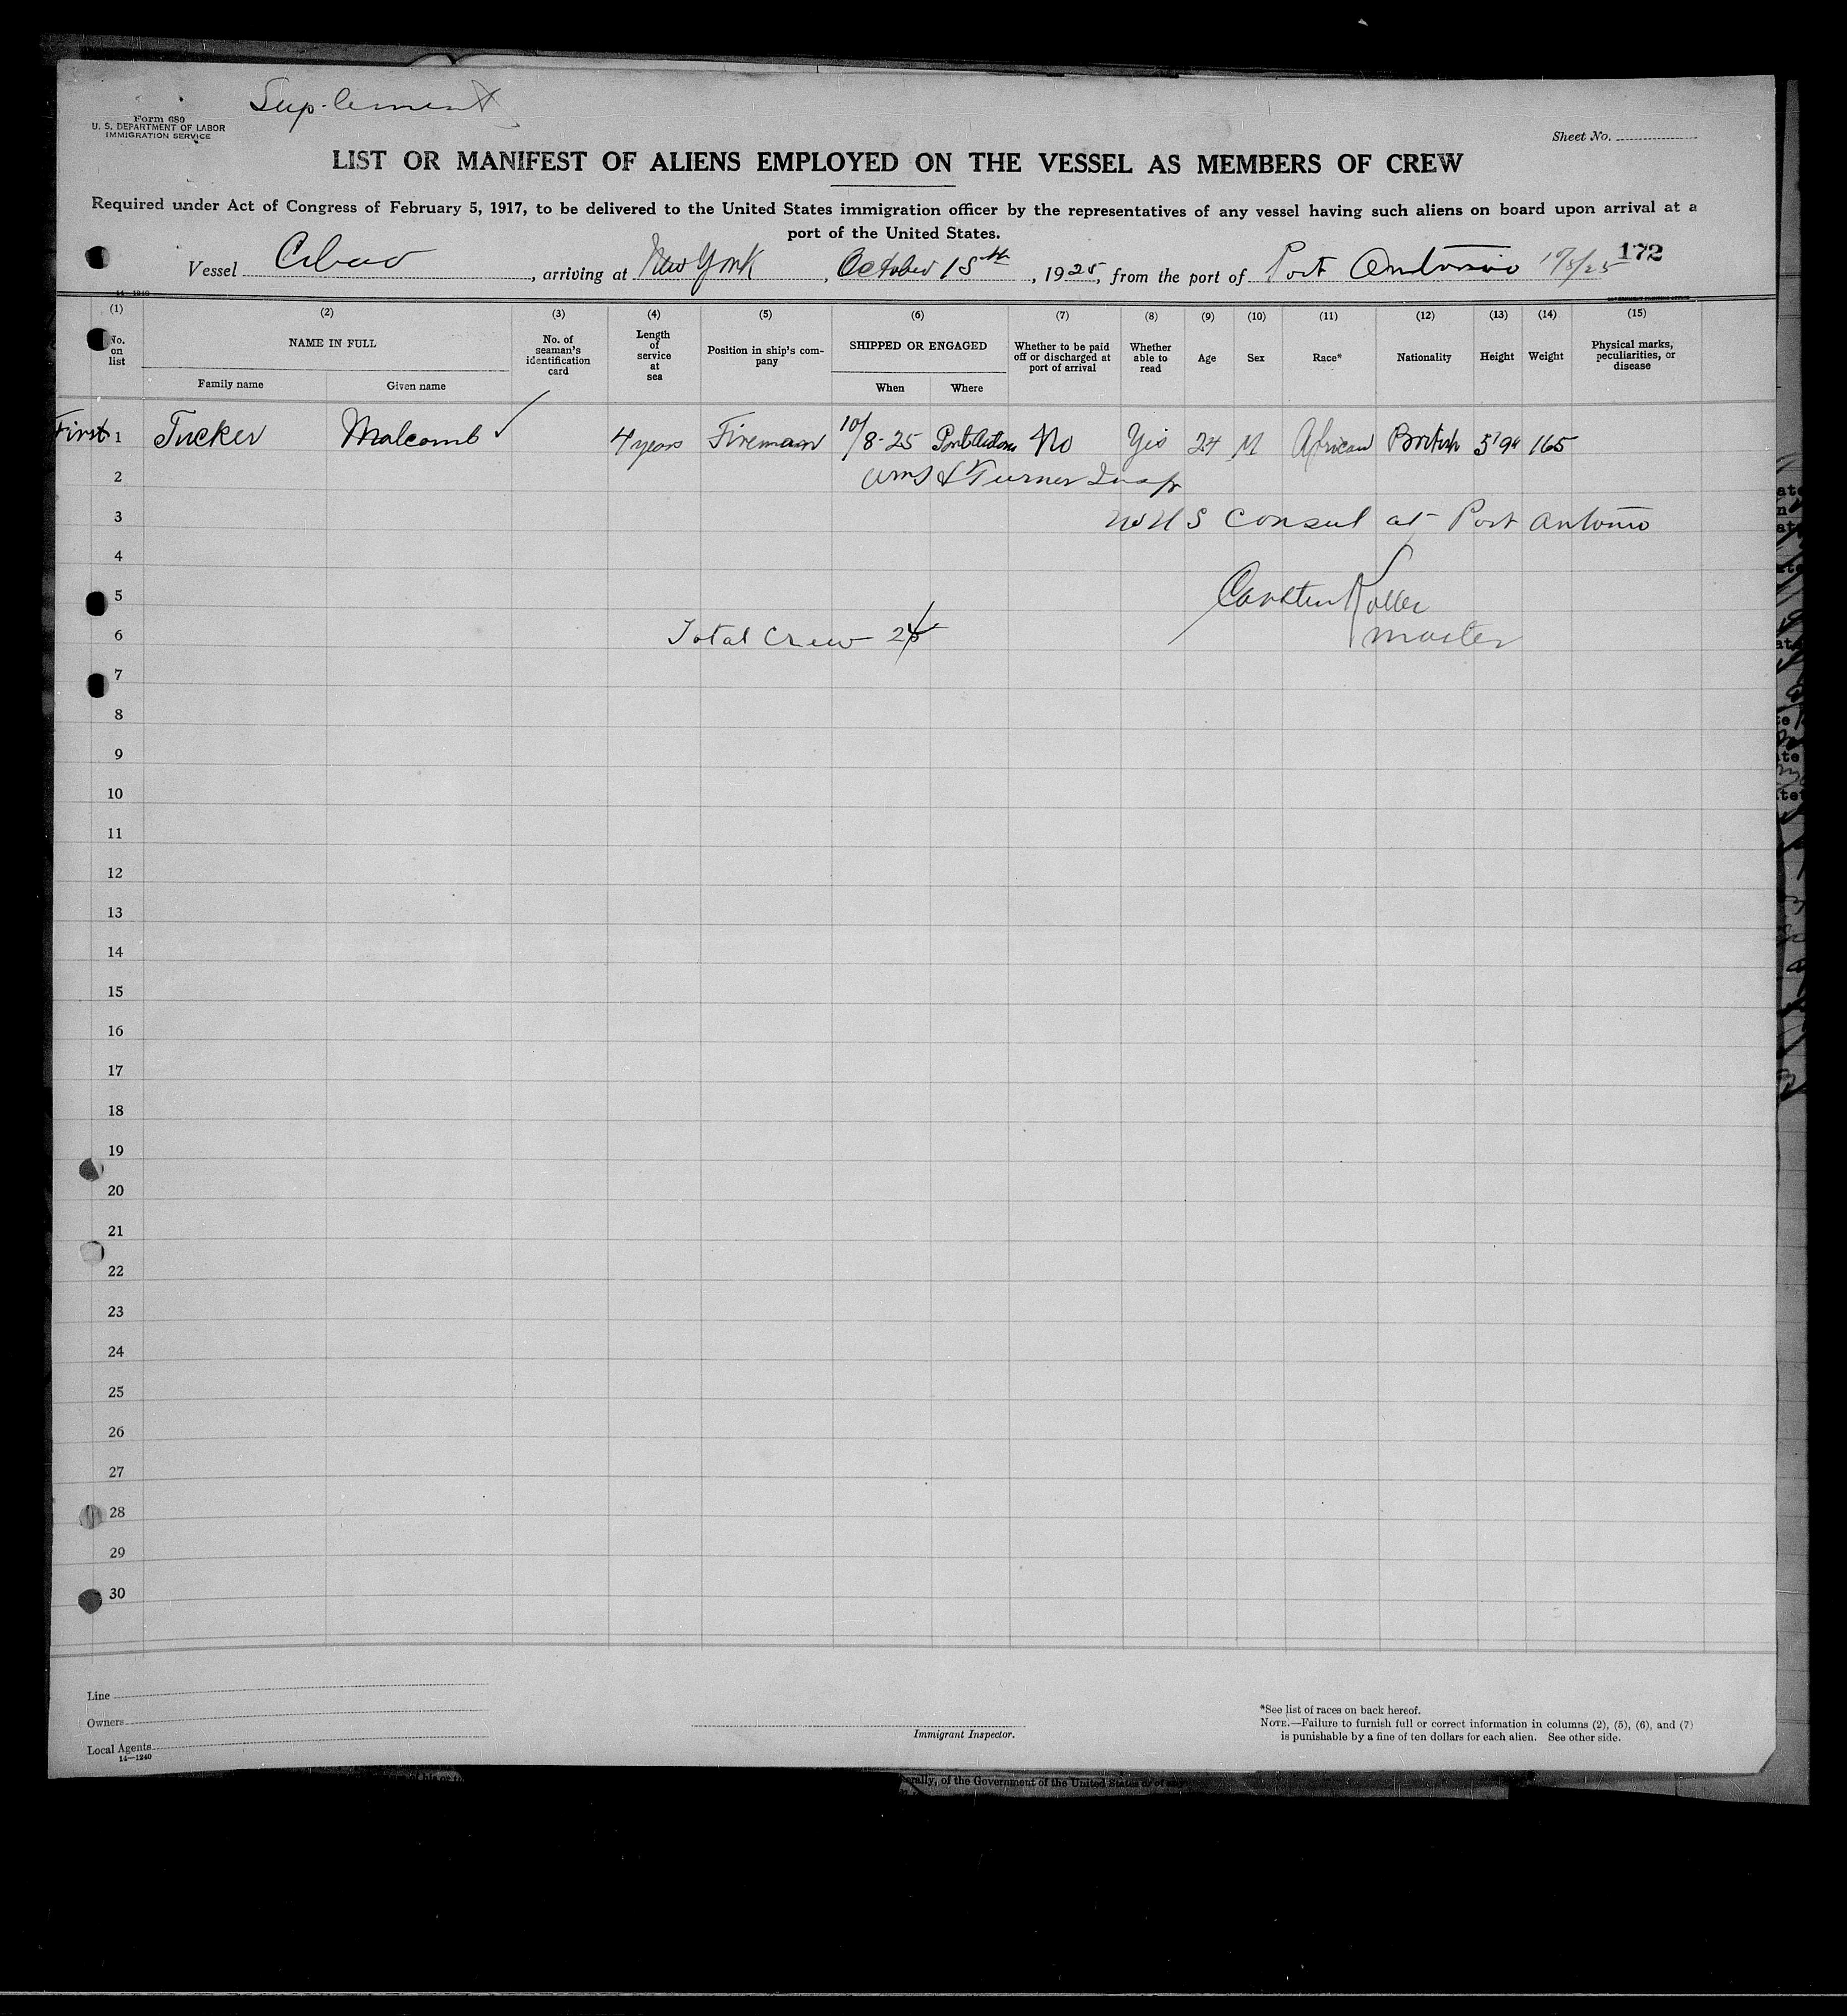 Suplement
Form 680
U. S. DEPARTMENT OF LABOR
IMMIGRATION SERVICE
Sheet No.
LIST OR MANIFEST OF ALIENS EMPLOYED ON THE VESSEL AS MEMBERS OF CREW
Required under Act of Congress of February 5, 1917, to be delivered to the United States immigration officer by the representatives of any vessel having such aliens on board upon arrival at a
port of the United States.
172
Vessel Cibao, arriving at New York, October 15th, 1925, from the port of Port Antonio 10/8/25
14—1240
(1) (2) (3) (4) (5) (6) (7) (8) (9) (10) (11) (12) (13) (14) (15)
No. on list
NAME IN FULL
Family name Given name
No. of seaman's identification card
Length of service at sea
Position in ship's company
SHIPPED OR ENGAGED
When Where
Whether to be paid off or discharged at port of arrival
Whether able to read
Age
Sex
Race*
Nationality
Height
Weight
Physical marks, peculiarities, or disease
First 1 Tucker Malcomb ✓ 4 years Fireman 10/8-25 Port Antonio No Yes 24 M African British 5'9" 165
2 Turner Insp
3 No U S Consul at Port Antonio
4
5
6 Total Crew master
7
8
9
10
11
12
13
14
15
16
17
18
19
20
21
22
23
24
25
26
27
28
29
30
Line
Owners
Local Agents
14—1240
Immigrant Inspector.
*See list of races on back hereof.
NOTE.—Failure to furnish full or correct information in columns (2), (5), (6), and (7)
is punishable by a fine of ten dollars for each alien. See other side.
erally, of the Government of the United States or of any